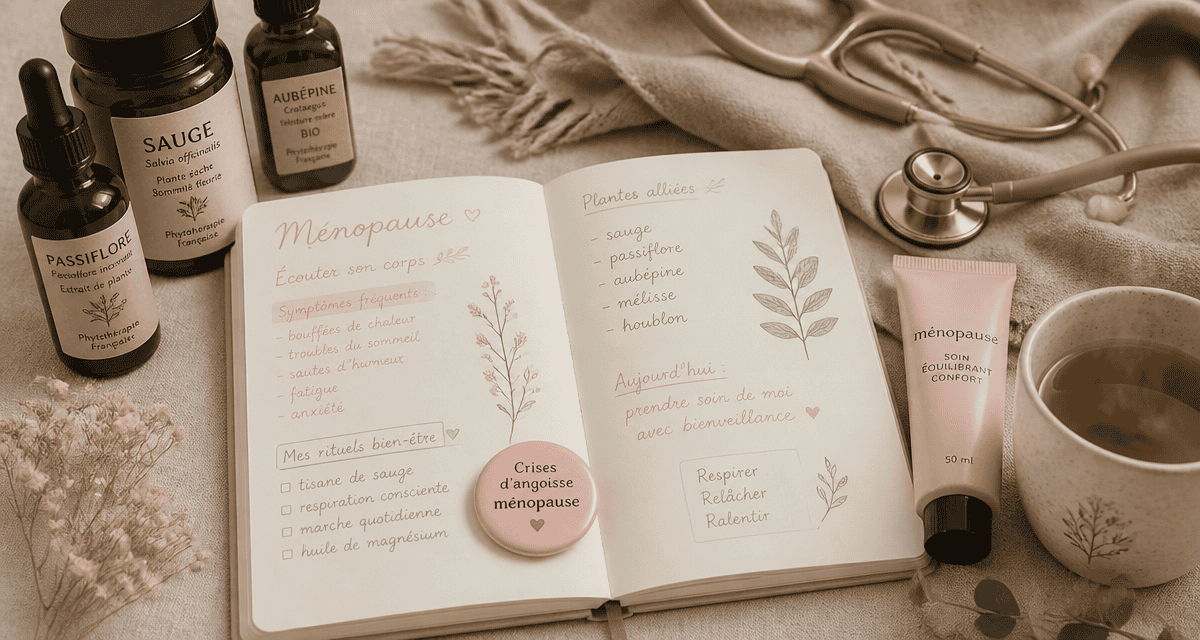 PASSIFLORE
Extrait de plante
Phytothérapie
Française
SAUGE
Salvia officinalis
Plante sèche
Sommité fleurie
Phytothérapie
Française
AUBÉPINE
Crataegus
Teinture mère
BIO
Phytothérapie
Française
Ménopause
Écouter son corps
Symptômes fréquents :
- bouffées de chaleur
- troubles du sommeil
- sautes d'humeur
- fatigue
- anxiété
Mes rituels bien-être
tisane de sauge
respiration consciente
marche quotidienne
huile de magnésium
Crises
d'angoisse
ménopause
Plantes alliées
- sauge
- passiflore
- aubépine
- mélisse
- houblon
Aujourd'hui :
prendre soin de moi
avec bienveillance
Respirer
Relâcher
Ralentir
ménopause
SOIN
ÉQUILIBRANT
CONFORT
50 ml